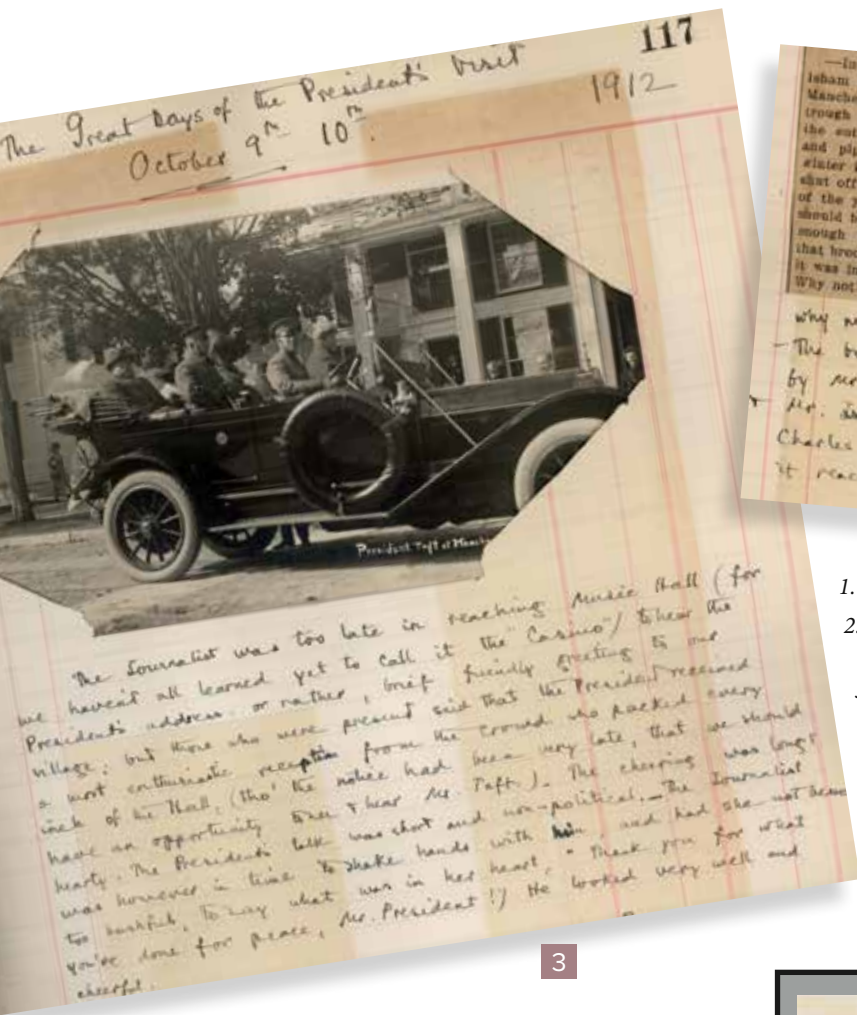 117
The Great Days of the President's Visit
October 9th 10th.
1912
President Taft at Manche
The Journalist was too late in reaching Music Hall (for
we haven't all learned yet to call it the "Casino") to hear the
President's address, or rather, brief friendly greeting to our
village; but those who were present said that the President received
a most enthusiastic reception from the crowd who packed every
inch of the Hall, (tho' the notice had been very late, that we should
have an opportunity to see & hear Mr. Taft.). The cheering was long &
hearty. The President's talk was short and non-political. — The Journalist
was however in time to shake hands with him, and had she not been
too bashful, to say what was in her heart, "Thank you for what
you've done for peace, Mr. President!" He looked very well and
cheerful.
3
—In
isham
Manche
trough
the
and pip
winter
shut off
of the y
should b
enough
that broo
it was in
Why not
why n
— The b
by Mr
Mr. Is
Charles
it reac
1.
2.